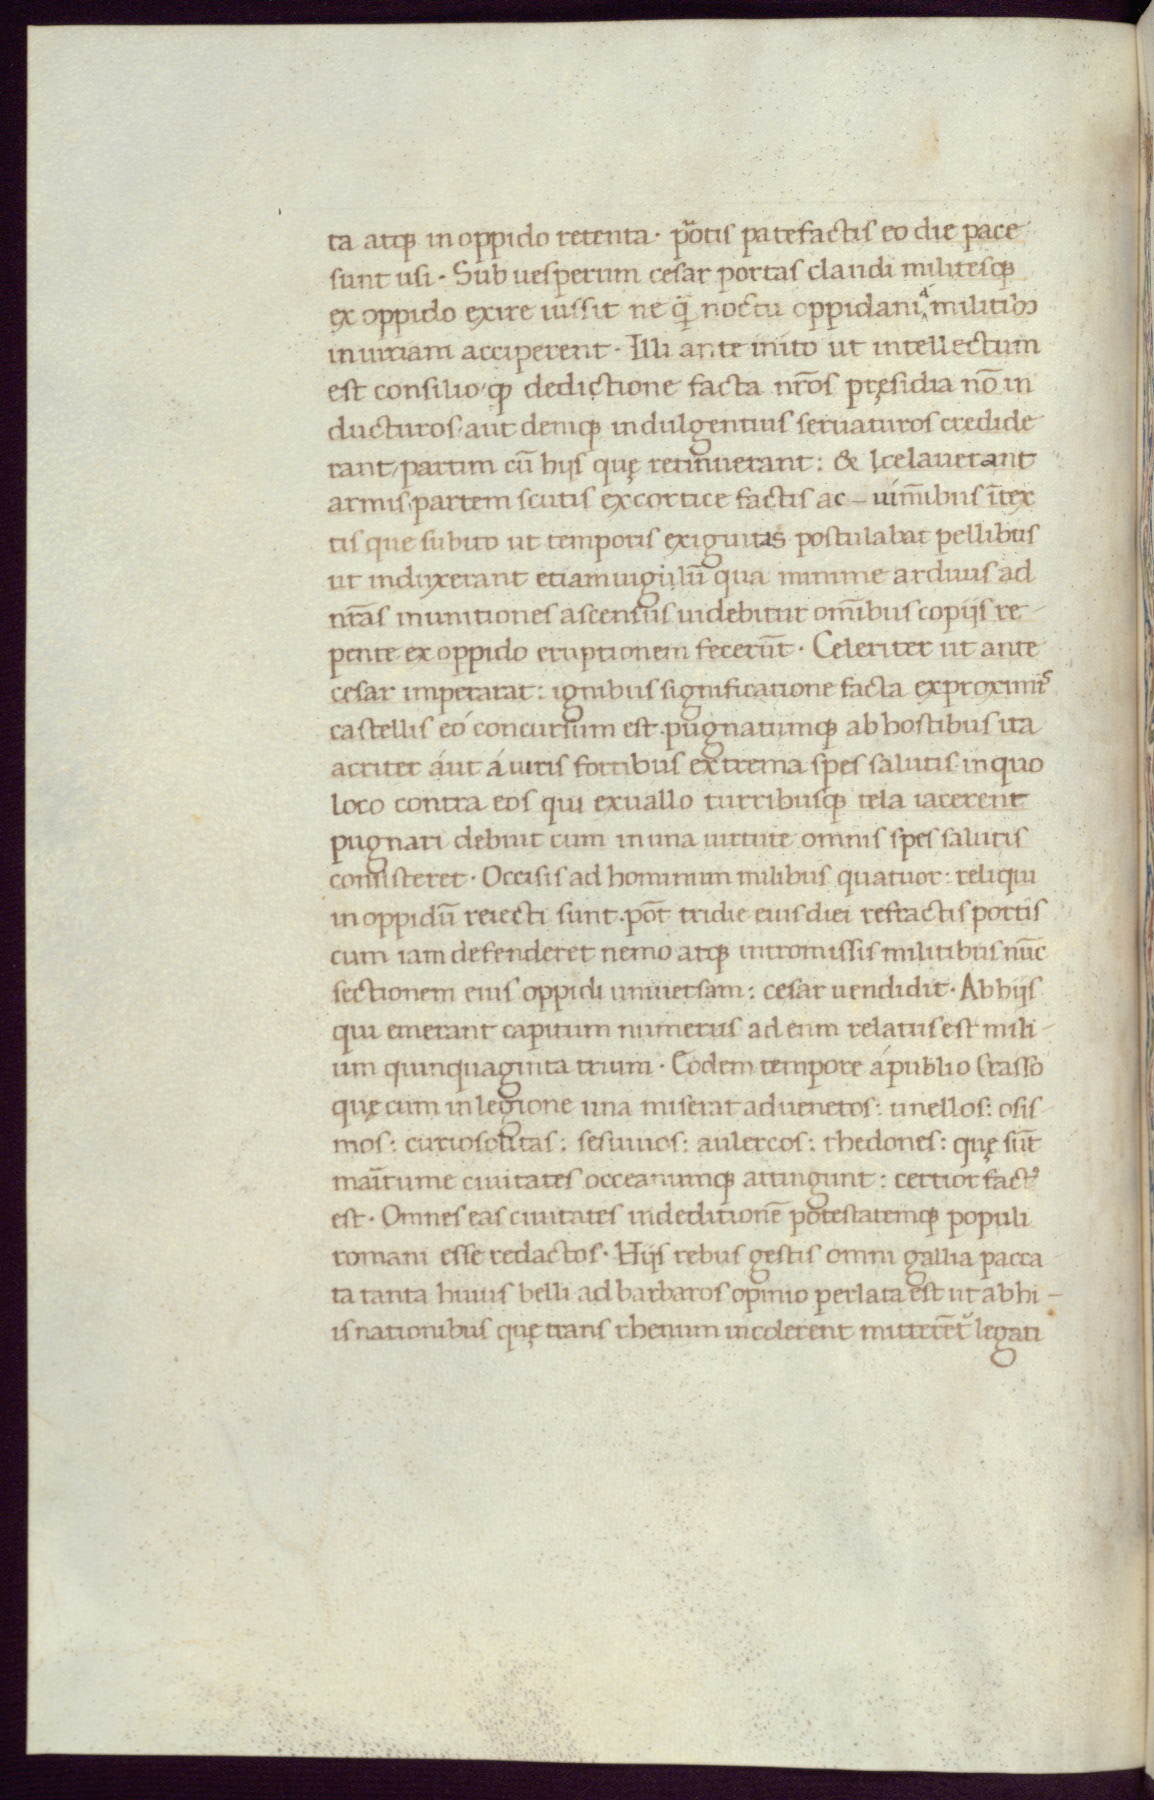 ta atq; in oppido retenta · p̃otis patefactis eo die pace
sunt usi · Sub uesperum cesar portas claudi militesq;
ex oppido exire iussit ne q̃ noctu oppidani a militibꝰ
iniuriam acciperent · Illi ante inito ut intellectum
est consilio q̃ dedictione facta nr̃os pręsidia nō in
ducturos aut deniq; indulgentius seruaturos credide
rant partim cū hijs quę retinuerant : & celauerant
armis partem scutis ex cortice factis ac – uim̄ibus ītex
tis que subito ut temporis exiguitas postulabat pellibus
ut induxerant etiam uigilū qua minime arduus ad
nr̃as munitiones ascensus uidebitur om̄ibus copijs re
pente ex oppido eruptionem fecerūt · Celeriter ut ante
cesar imperarat : ignibus significatione facta ex proximis
castellis eó concursum est pugnatumq; ab hostibus ita
acriter áut á uiris fortibus extrema spes salutis in quo
loco contra eos qui ex uallo turribusq; tela iacerent
pugnari debuit cum in una uirtute omnis spes salutis
consisteret · Occisis ad hominum milibus quatuor : reliqui
in oppidū reiecti sunt . pōt tridie eius diei refractis portis
cum iam defenderet nemo atq; intromissis militibus nūc
sectionem eius oppidi uniuersam : cesar uendidit · Ab hijs
qui emerant capitum numerus ad eum relatus est mili
um quinquaginta trium · Eodem tempore á publio Crasso
quę cum in legione una miserat ad uenetos : unellos : osis
mos : curiosolitas : sesuuios : aulercos : rhedones : quę sūt
maītume ciuitates occeanumq; attingunt : certior factꝰ
est · Omnes eas ciuitates in deditionē potestatemq; populi
romani esse redactos · Hijs rebus gestis omni gallia pacca
ta tanta huius belli ad barbaros opinio perlata est ut ab hi –
is nationibus quę trans rhenum incolerent mitterēt᷑ legati